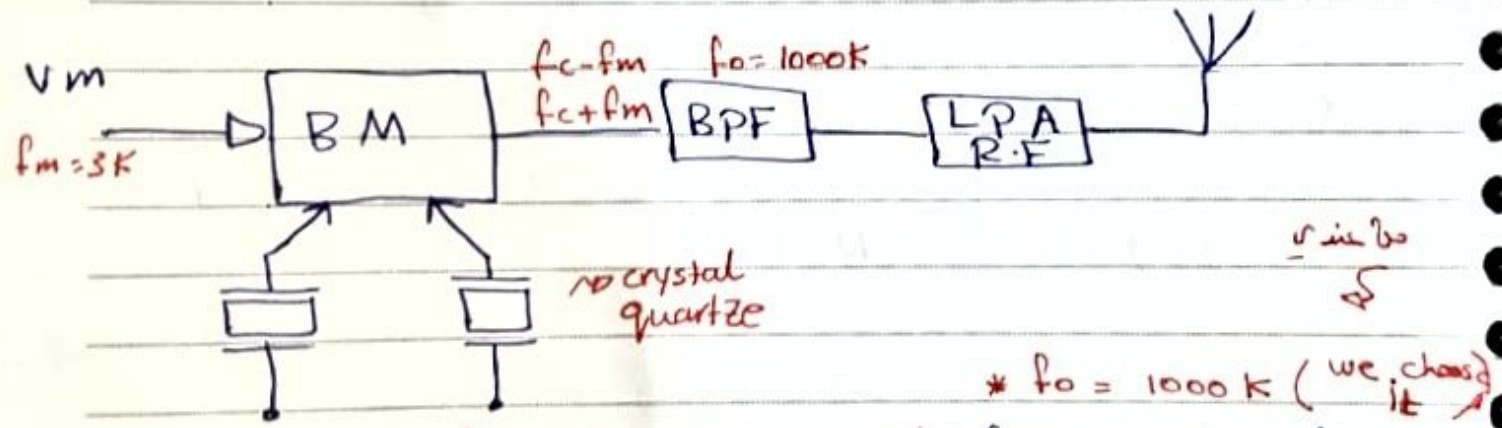 Vm
fm=3K
BM
fc-fm
fc+fm
fo=1000K
BPF
LPA
R.F
→ crystal
quartze
* fo = 1000 K (we choose
it